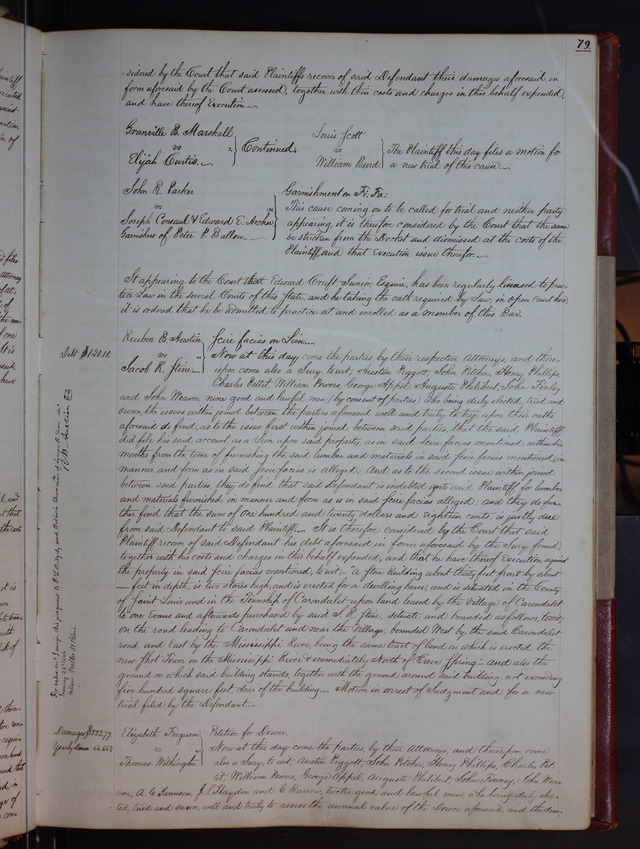 79
sidered by the Court that said Plaintiffs recover of said Defendant their damages aforesaid in
form aforesaid by the Court assessed, together with their costs and charges in this behalf expended,
and have thereof Execution.
Granville B. Marshall
vs
Elijah Curtis.
Continued.
Louis Scott
vs
William Burd
The Plaintiff this day files a motion for
a new trial of this cause.
John R. Parker
vs
Joseph Consaul & Edward E. Archer
Garnishees of Peter P. Ballon.
Garnishment on Fi: Fa:
This cause coming on to be called for trial and neither party
appearing, it is therefore considered by the Court that the same
be stricken from the Docket and dismissed at the costs of the
Plaintiff, and that Execution issue therefor.
It appearing to the Court that Edward Junior, Esquire, has been regularly licensed to prac-
tice Law in the several Courts of this State, and he taking the oath required by Law, in open court here,
it is ordered that he be admitted to practice at and enrolled as a member of this Bar.
Debt $120.18
Reuben B. Austin
vs
Jacob R. Stine
Scire facias on Lien.
Now at this day, come the parties by their respective Attorneys, and there-
upon come also a Jury, to wit, Austin Piggott, John Pitcher, Henry Phillips
Charles Pottit, William Powers, George Appel, Auguste Philibert, John Finley
and John Weaver, nine good and lawful men (by consent of parties) who being duly elected, tried and
sworn, the issues within joined between the parties aforesaid well and truly to try, upon their oaths
aforesaid do find, as to the issue first within joined between said parties, that the said Plaintiff
did file his said account as a Lien upon said property, as in said Scire facias mentioned, within six
months from the time of furnishing the said lumber and materials in said scire facias mentioned, in
manner and form as in said scire facias is alleged; And as to the second issue within joined
between said parties, they do find that said Defendant is indebted unto said Plaintiff for lumber
and materials furnished, in manner and form as is in said scire facias alleged, and they do fur-
ther find that the sum of one hundred and twenty dollars and eighteen cents, is justly due
from said Defendant to said Plaintiff. It is therefore considered by the Court that said
Plaintiff recover of said Defendant his debt aforesaid in form aforesaid by the Jury found,
together with his costs and charges on this behalf expended, and that he have thereof Execution against
the property in said scire facias mentioned, to wit; "a Stone Building about thirty feet front by about
feet in depth, is two stories high, and is erected for a dwelling house, and is situated in the County
of Saint Louis and in the Township of Carondelet upon land leased by the Village of Carondelet
to one Evans and afterwards purchased by said J. R. Stine, situate and bounded as follows, to wit,
on the road leading to Carondelet and near the Village, bounded West by the said Carondelet
road, and East by the Mississippi River, being the same tract of land on which is erected the
new Shot Tower on the Mississippi River & immediately North of "Cave Spring" and also the
ground on which said building stands, together with the ground around said building not exceeding
five hundred square feet clear of the building. Motion in arrest of Judgment and for a new
trial filed by the Defendant.
Damages $333.77
Yearly 66.66
Elizabeth Ferguson
vs
Thomas Withington
Petition for Dower.
Now at this day come the parties by their Attorneys, and thereupon come
also a Jury, to wit, Austin Piggott, John Pitcher, Henry Phillips, Charles Pot-
tit, William Powers, George Appel, Auguste Philibert, John Finney, John Wea-
ver, A. G. J. L. Haydon and C. Barrow, twelve good and lawful men, who being duly elec-
ted, tried and sworn, well and truly to assess the annual value of the Dower aforesaid and the dam-